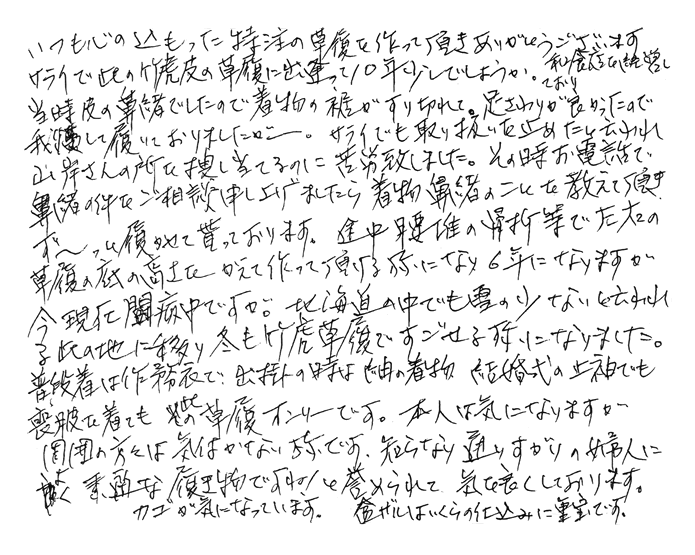 いつも心の込もった特注の草履を作って頂きありがとうございます
サライで此の竹虎皮の草履に出逢って10年少しでしょうか。和食店を経営しており
当時皮の鼻緒でしたので着物の裾がすり切れて。足ざわりが良かったので
我慢して履いておりましたが〜。サライでも取り扱いを止めたと云われ
山岸さんの所を捜し当てるのに苦労致しました。その時お電話で
鼻緒の件をご相談申し上げましたら着物鼻緒のことを教えて頂き
ず〜っと履かせて貰っております。途中腰椎の骨折等で左右の
草履の底の高さをかえて作って頂ける様になり6年になりますが
今現在闘病中ですが。北海道の中でも雪の少ないと云われ
る此の地に移り冬も竹虎草履ですごせる様になりました。
普段着は作務衣で、出掛の時は紬の着物 結婚式の上袖でも
喪服を着ても 此の草履オンリーです。本人は気になりますが
周囲の方々は気付かない様です、知らない通りすがりの婦人に
よく 素適な履き物ですね!と誉められて、気を良くしております。
カゴが気になっています。 盆ザルはいくらの仕込みに重宝です。